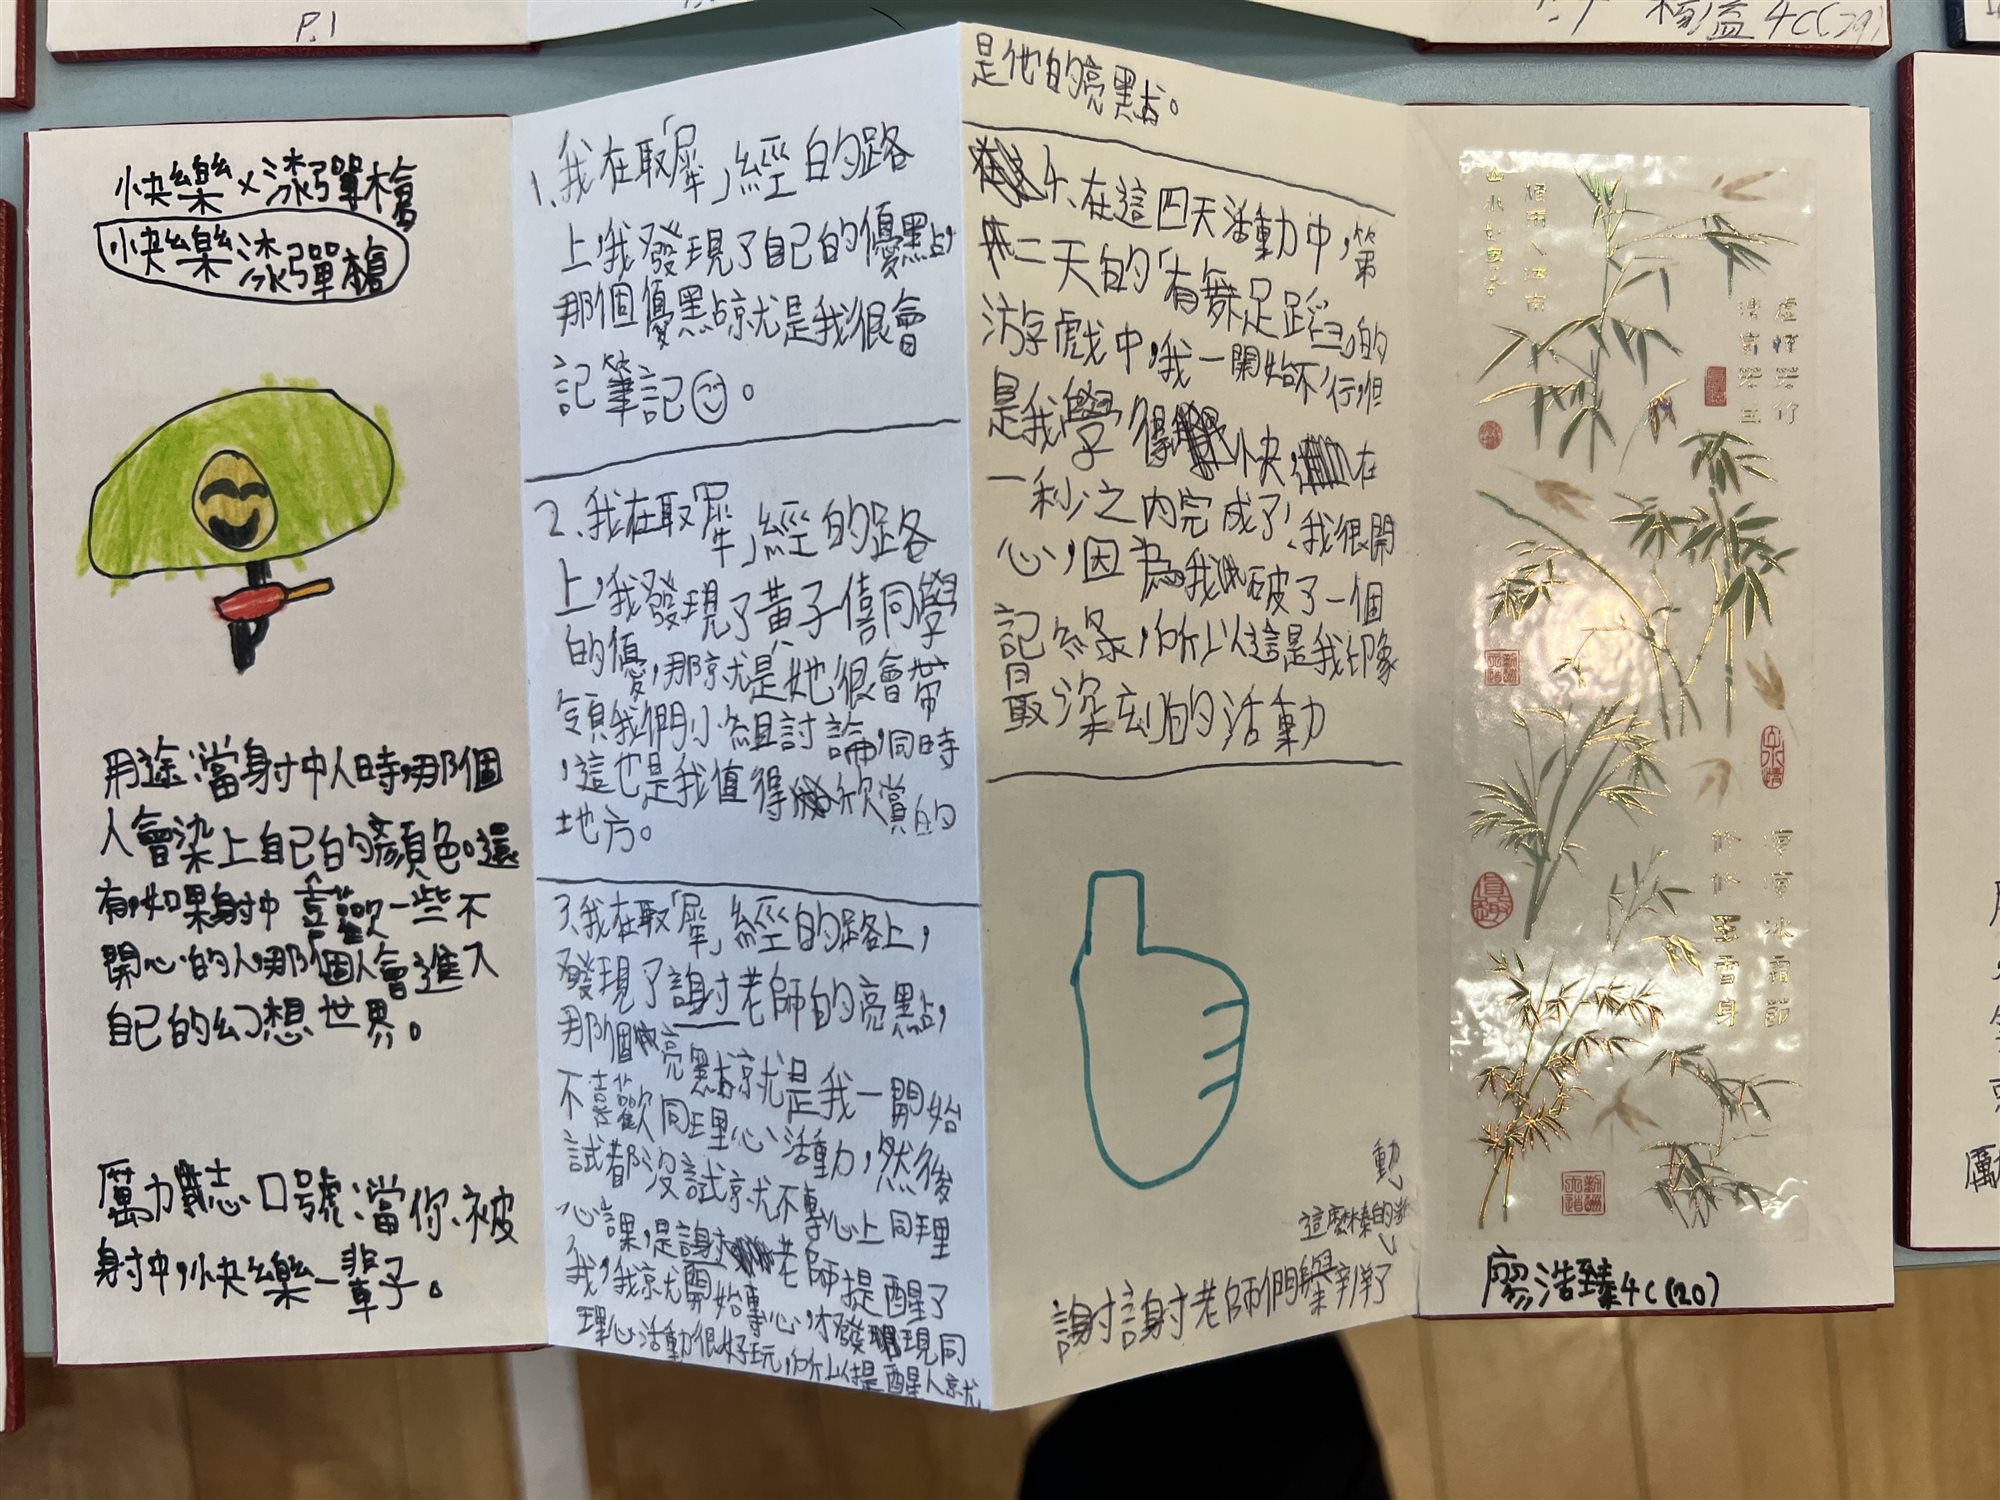 P.1
4C(29)
快樂×漆彈槍
快樂漆彈槍
用途:當射中人時,那個
人會染上自己的顏色。還
有,如果射中喜歡一些不
開心的人,那個人會進入
自己的幻想世界。
厲力戠志口號:當你被
射中,快樂一輩子。
1、我在取「犀」經的路
上,我發現了自己的優點,
那個優點就是我很會
記筆記。
2、我在取「犀」經的路
上,我發現了黃子僖同學
的優,那就是她很會帶
領我們小組討論,同時
,這也是我值得欣賞的
地方。
3、我在取「犀」經的路上,
發現了謝老師的亮點,
那個亮點就是我一開始
不喜歡同理心活動,然後
試都沒試就不專心上同理
心課,是謝老師提醒了
我,我就開始專心,才發現同
理心活動很好玩,所以提醒人就
是他的亮點。
4、在這四天活動中,第
二天的「有舞足蹈」的
游戲中,我一開始不行,但
是我學得快,在
一秒之內完成了!我很開
心,因為我破了一個
記錄,所以這是我印象
最深刻的活動
動
這麼棒的
謝謝老師們舉辦了
虛心異眾草
冰霜節
雪身
廖浩臻4C(20)